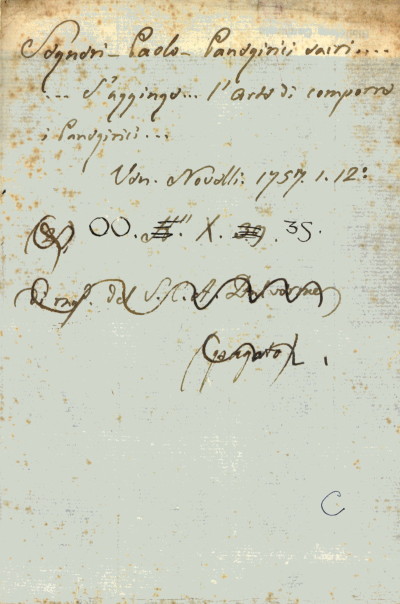 Segneri - Paolo - Panegirici sacri....
... S'agginge... l'Arte di comporre
i Panegirici...
Ven. Novelli. 1757. 1. 12º
OO. X. 35.
di del S. C. A.
C